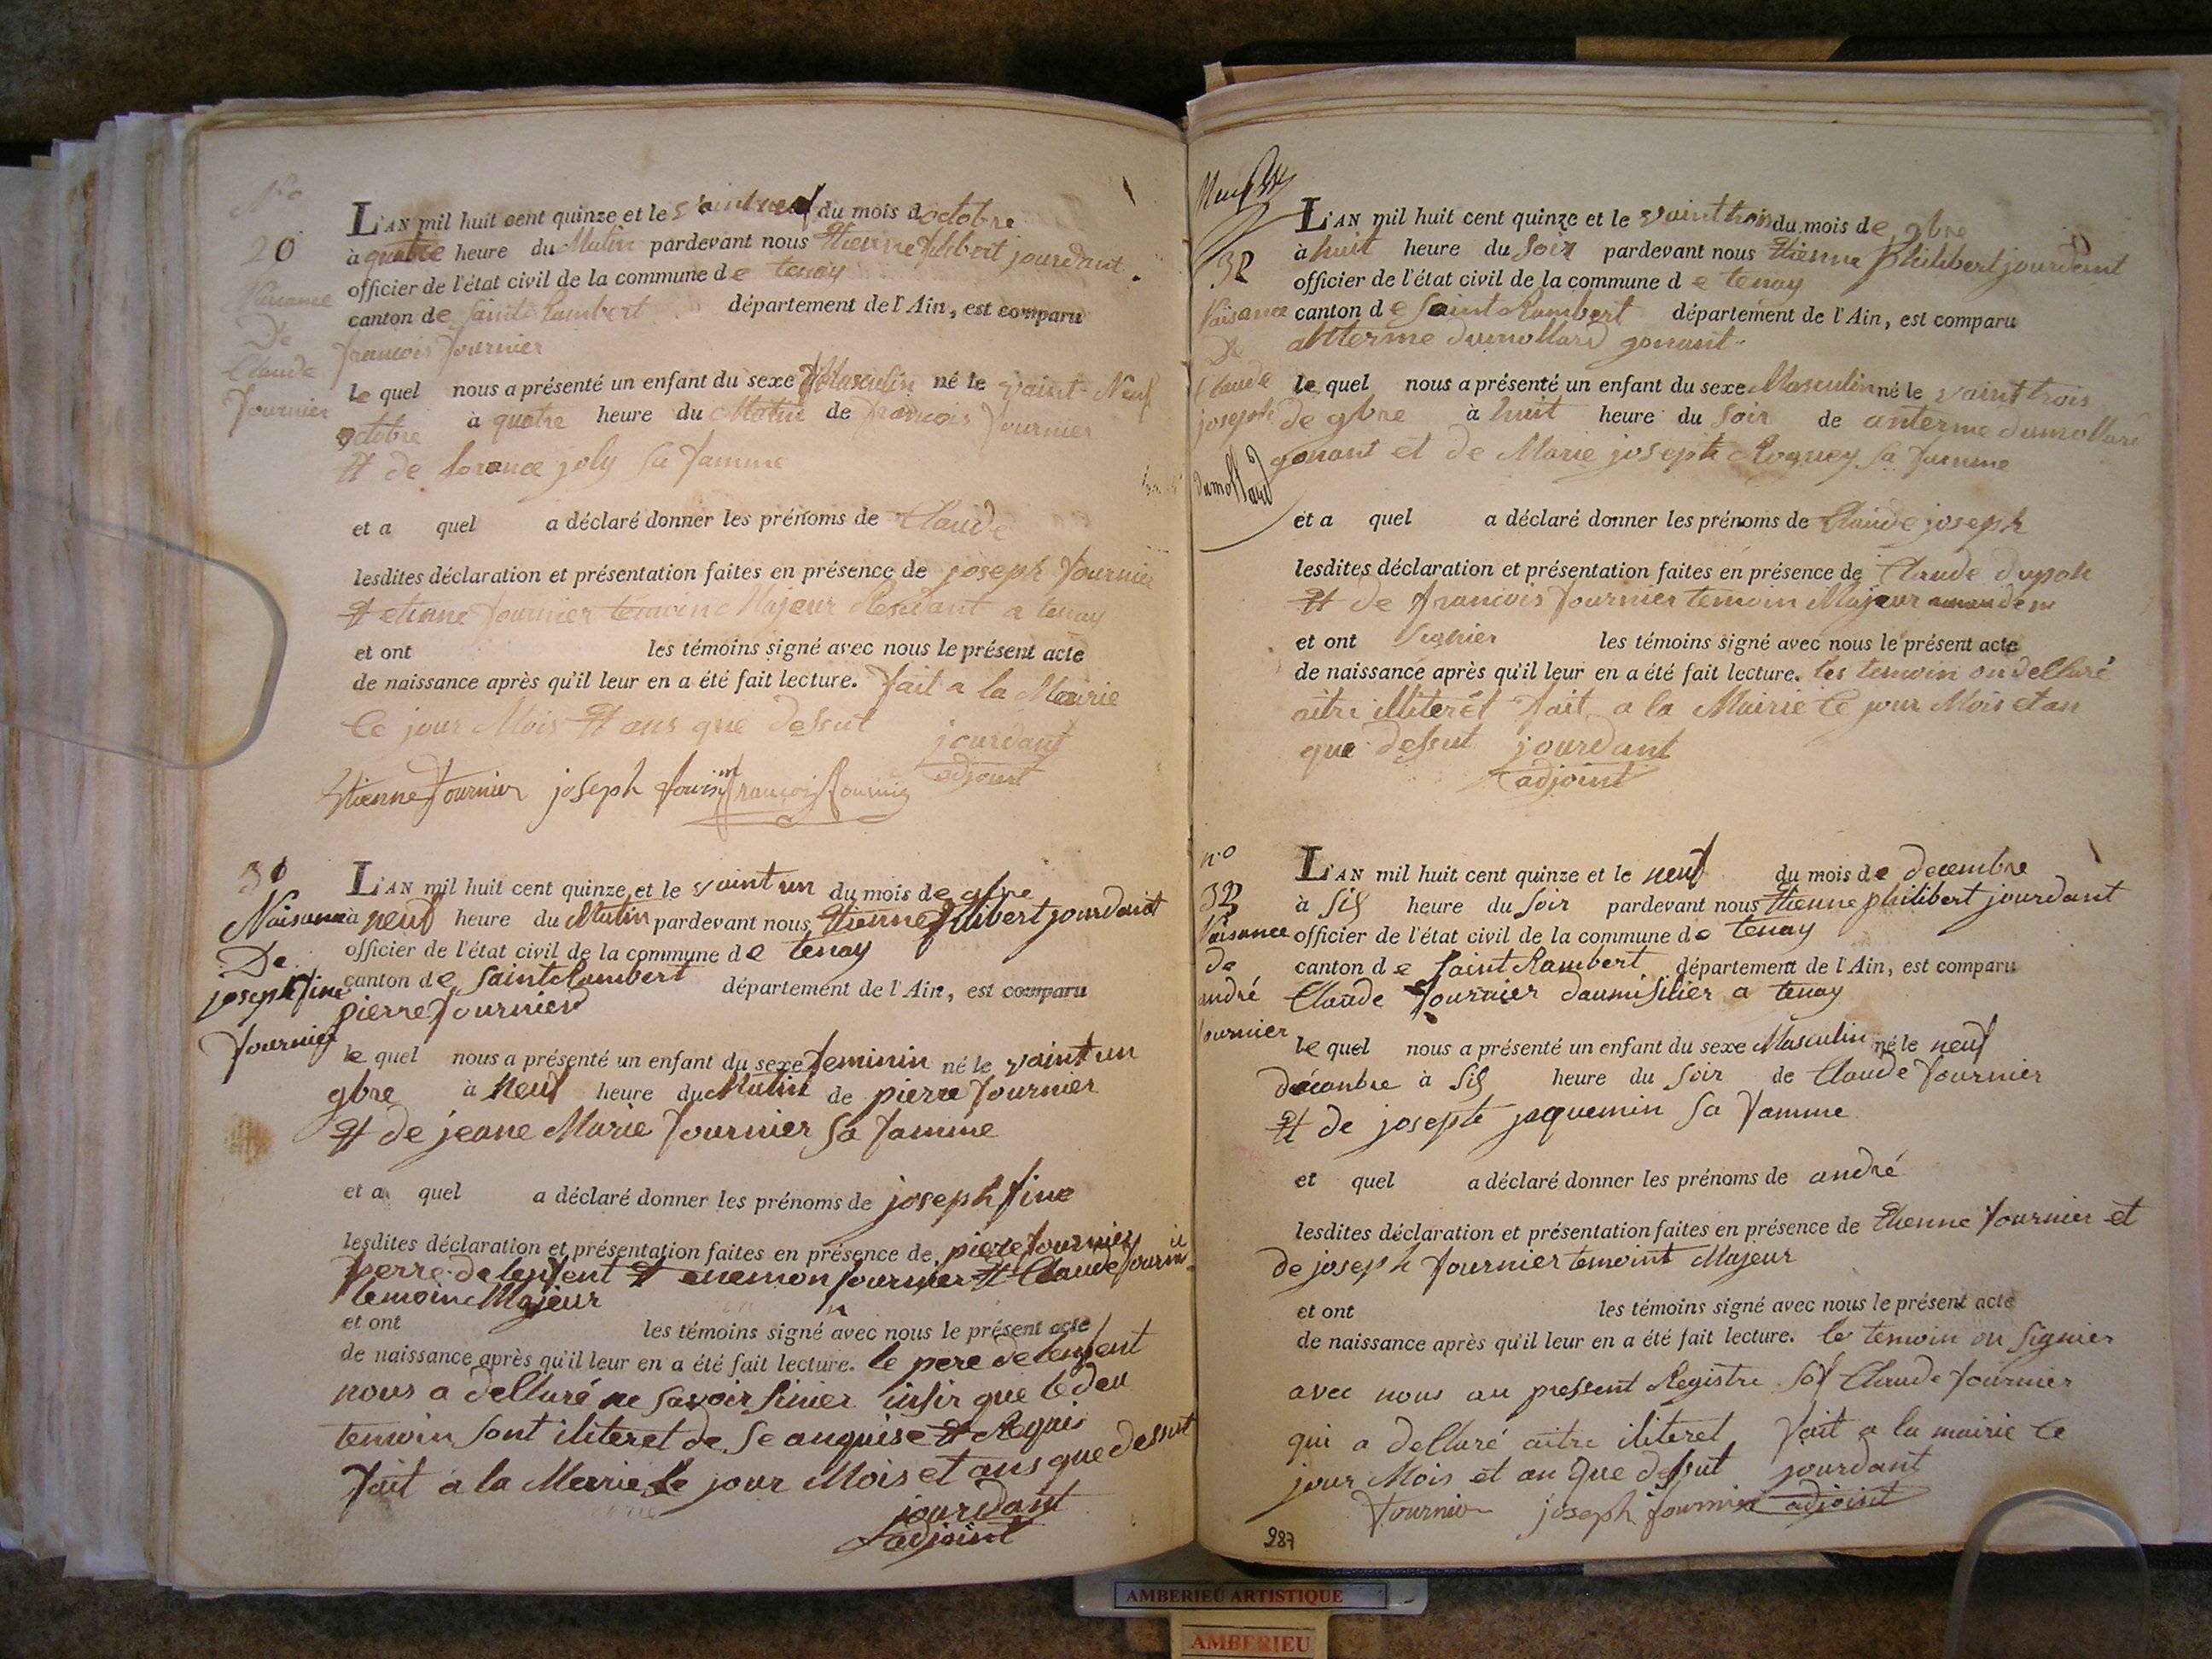 No
20
Naisance
De
Claude
fournier
L'AN mil huit cent quinze et le vaint neuf du mois d octobre
à quatre heure du Matin pardevant nous Etienne filibert jourdant
officier de l'état civil de la commune de tenay
canton de Saint Rambert département de l'Ain, est comparu
francois fournier
le quel nous a présenté un enfant du sexe Masculin né le vaint Neuf
octobre à quatre heure du Matin de francois fournier
Et de lorance joly sa famme
et a quel a déclaré donner les prénoms de Claude
lesdites déclaration et présentation faites en présence de joseph fournier
Et etienne fournier temoin Majeur Residant a tenay
et ont les témoins signé avec nous le présent acte
de naissance après qu'il leur en a été fait lecture. fait a la Mairie
le jour Mois Et ans que dessut
jourdant
adjoint
Etienne fournier joseph fournier françois fournier
31
Naisance
De
joseph fine
fournier
L'AN mil huit cent quinze et le vaint un du mois de 9bre
à neuf heure du Matin pardevant nous Etienne filibert jourdant
officier de l'état civil de la commune de tenay
canton de Saint Rambert département de l'Ain, est comparu
pierre fournier
le quel nous a présenté un enfant du sexe feminin né le vaint un
9bre à Neuf heure du Matin de pierre fournier
Et de jeane Marie fournier sa famme
et a quel a déclaré donner les prénoms de joseph fine
lesdites déclaration et présentation faites en présence de pierre fournier
perre de lenfent Et enemon fournier Et Claude fournier
temoin Majeur
et ont les témoins signé avec nous le présent acte
de naissance après qu'il leur en a été fait lecture. le pere de lenfent
nous a delluré ne savoir sinier insir que le deu
temoin sont iliteret de se anquise Et Requis
fait a la Merrie le jour Mois et ans que dessut
jourdant
adjoint
32
Naisance
De
Claude
joseph
dumollard
L'AN mil huit cent quinze et le vaint trois du mois de 9bre
à huit heure du Soir pardevant nous Etienne philibert jourdant
officier de l'état civil de la commune de tenay
canton de Saint Rambert département de l'Ain, est comparu
antterme dumollard gonant
le quel nous a présenté un enfant du sexe Masculin né le vaint trois
de 9bre à huit heure du Soir de anterme dumollard
gonant et de Marie josephe Roquey sa famme
et a quel a déclaré donner les prénoms de Claude joseph
lesdites déclaration et présentation faites en présence de Claude
Et de francois fournier temoin Majeur
et ont signier les témoins signé avec nous le présent acte
de naissance après qu'il leur en a été fait lecture. les temoin on delluré
aitre illiterét fait a la Mairie le jour Mois et an
que dessut jourdant
adjoint
no
32
Naisance
de
andré
fournier
L'AN mil huit cent quinze et le neuf du mois de decembre
à Sis heure du Soir pardevant nous Etienne philibert jourdant
officier de l'état civil de la commune de tenay
canton de Saint Rambert département de l'Ain, est comparu
Claude fournier daumisilier a tenay
le quel nous a présenté un enfant du sexe Masculin né le neuf
décembre à Sis heure du Soir de Claude fournier
Et de josephe jaquemin sa famme
et quel a déclaré donner les prénoms de andré
lesdites déclaration et présentation faites en présence de Etienne fournier et
de joseph fournier temoint Majeur
et ont les témoins signé avec nous le présent acte
de naissance après qu'il leur en a été fait lecture. le temoin on signier
avec nous au pressent Registre sof Claude fournier
qui a delluré aitre iliteret fait a la mairie le
jour Mois et an que dessut jourdant
fournier joseph fournier adjoint
287
AMBERIEU ARTISTIQUE
AMBERIEU